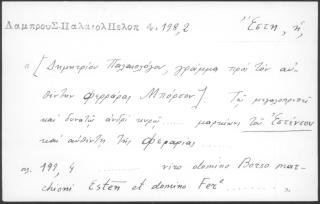 Λαμπρου Σ. Παλαιολ Πελοπ τ. 198,2 Ἔστη, ἡ,
" [Δημητρίου Παλαιολόγου, γράμμα πρὸς τὸν αὐ-
θέντην Φερράρας Μπόρσον] Τῷ μεγαλοπρεπεῖ
καὶ δυνατῷ ἀνδρὶ κυρῷ ... μαρκίωνι τοῦ Ἐστένσου
καὶ αὐθέντῃ τῆς Φεραρίας ...
199, 4 ... viro domino Borso mar-
chioni Esten̄ et domino Fer̄ ...